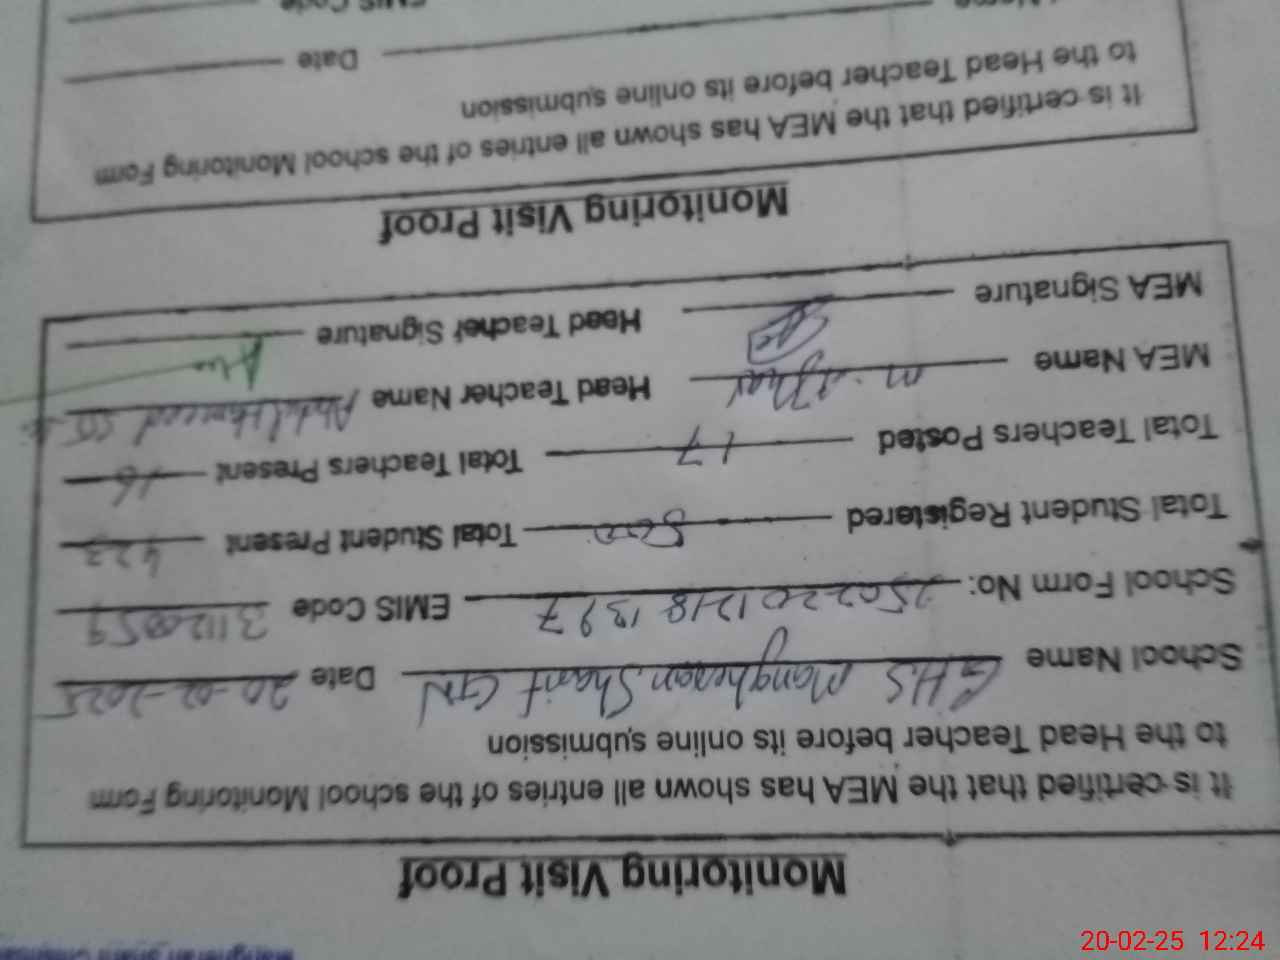 Monitoring Visit Proof
It is certified that the MEA has shown all entries of the school Monitoring Form
to the Head Teacher before its online submission
School Name GHS Mangheran Sharif GN Date 20-02-2025
School Form No: 25022012181397 EMIS Code 31120059
Total Student Registered 500 Total Student Present 423
Total Teachers Posted 17 Total Teachers Present 16
MEA Name M. Head Teacher Name Abdul Hameed
MEA Signature Head Teacher Signature
Monitoring Visit Proof
It is certified that the MEA has shown all entries of the school Monitoring Form
to the Head Teacher before its online submission
Date
EMIS Code
20-02-25 12:24